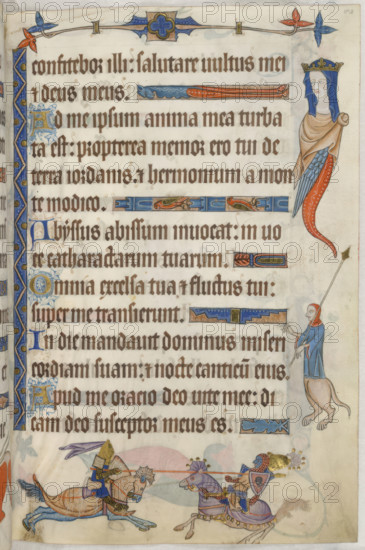 confitebor illi: salutare uultus mei
⁊ deus meus.
Ad me ipsum anima mea turba
ta est: propterea memor ero tui de
terra iordanis. ⁊ hermonium a mon
te modico.
Abyssus abissum inuocat: in uo
ce catharactarum tuarum.
Omnia excelsa tua ⁊ fluctus tui:
super me transierunt.
In die mandauit dominus miseri
cordiam suam: ⁊ nocte canticum eius.
Apud me oracio deo uite mee: di
cam deo susceptor meus es.
PHOTO12